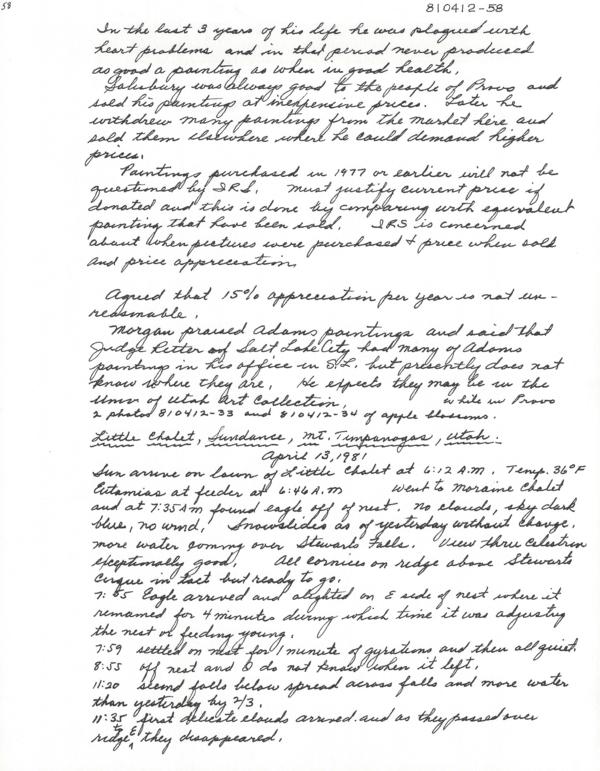 58
810412-58
In the last 3 years of his life he was plagued with
heart problems and in that period never produced
as good a painting as when in good health.
Salisbury was always good to the people of Provo and
sold his paintings at inexpensive prices. Later he
withdrew many paintings from the market here and
sold them elsewhere where he could demand higher
prices.
Paintings purchased in 1977 or earlier will not be
questioned by IRS. Must justify current price if
donated and this is done by comparing with equivalent
painting that have been sold. IRS is concerned
about when pictures were purchased + price when sold
and price appreciation.
Agreed that 15% appreciation per year is not un-
reasonable.
Morgan praised Adams paintings and said that
Judge Ritter of Salt Lake City had many of Adams
paintings in his office in S.L. but presently does not
know where they are. He expects they may be in the
Univ of Utah Art Collection. while in Provo
2 photos 810412-33 and 810412-34 of apple blossoms.
Little Chalet, Sundance, Mt. Timpanogas, Utah.
April 13, 1981
Sun arrive on lawn of Little Chalet at 6:12 A.M. Temp. 36°F
Eutamias at feeder at 6:46 A.M went to Moraine Chalet
and at 7:35 AM found eagle off of nest. No clouds, sky dark
blue, no wind. Snowslides as of yesterday without change.
more water coming over Stewarts Falls. View thru Celestron
exceptionally good. All cornices on ridge above Stewarts
Cirque in tact but ready to go.
7:55 Eagle arrived and alighted on E side of nest where it
remained for 4 minutes during which time it was adjusting
the nest or feeding young.
7:59 settled on nest for 1 minute of gyrations and then all quiet.
8:55 off nest and I do not know when it left.
11:20 second falls below spread across falls and more water
than yesterday by 2/3.
11:35 first delicate clouds arrived and as they passed over
ridge to E they disappeared.